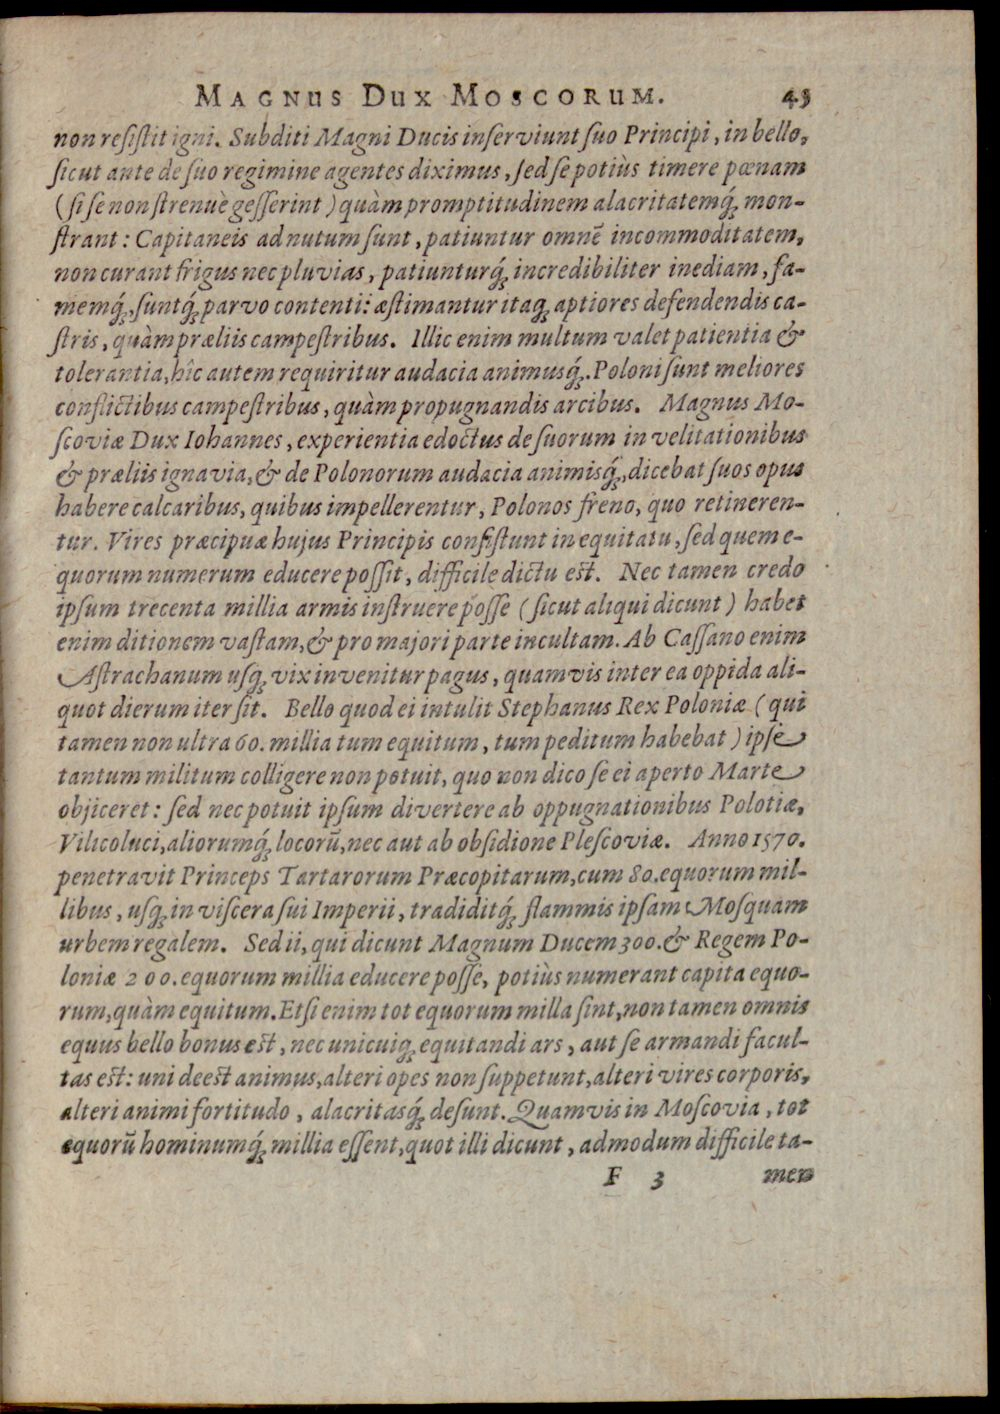 MAGNUS DUX MOSCORUM. 45
non reſiſtit igni. Subditi Magni Ducis inſerviunt ſuo Principi, in bello,
ſicut ante de ſuo regimine agentes diximus, ſed ſe potiùs timere pœnam
(ſi ſe non ſtrenuè geſſerint) quàm promptitudinem alacritatemq́; mon-
ſtrant: Capitaneis ad nutum ſunt, patiuntur omnē incommoditatem,
non curant frigus nec pluvias, patiunturq́; incredibiliter inediam, fa-
memq́;, ſuntq́; parvo contenti: æſtimantur itaq; aptiores defendendis ca-
ſtris, quàm præliis campeſtribus. Illic enim multum valet patientia &
tolerantia, hîc autem requiritur audacia animusq́;. Poloni ſunt meliores
conflictibus campeſtribus, quàm propugnandis arcibus. Magnus Mo-
ſcoviæ Dux Iohannes, experientia edoctus de ſuorum in velitationibus
& præliis ignavia, & de Polonorum audacia animisq́;, dicebat ſuos opus
habere calcaribus, quibus impellerentur, Polonos freno, quo retineren-
tur. Vires præcipuæ hujus Principis conſiſtunt in equitatu, ſed quem e-
quorum numerum educere poſſit, difficile dictu eſt. Nec tamen credo
ipſum trecenta millia armis inſtruere poſſe (ſicut aliqui dicunt) habet
enim ditionem vaſtam, & pro majori parte incultam. Ab Caſſano enim
Aſtrachanum uſq; vix invenitur pagus, quamvis inter ea oppida ali-
quot dierum iter ſit. Bello quod ei intulit Stephanus Rex Poloniæ (qui
tamen non ultra 60. millia tum equitum, tum peditum habebat) ipſe
tantum militum colligere non potuit, quo non dico ſe ei aperto Marte
objiceret: ſed nec potuit ipſum divertere ab oppugnationibus Polotiæ,
Vilicoluci, aliorumq́; locorū, nec aut ab obſidione Pleſcoviæ. Anno 1570.
penetravit Princeps Tartarorum Præcopitarum, cum 80. equorum mil-
libus, uſq; in viſcera ſui Imperii, tradiditq́; flammis ipſam Moſquam
urbem regalem. Sed ii, qui dicunt Magnum Ducem 300. & Regem Po-
loniæ 200. equorum millia educere poſſe, potiùs numerant capita equo-
rum, quàm equitum. Etſi enim tot equorum milla ſint, non tamen omnis
equus bello bonus eſt, nec unicuiq; equitandi ars, aut ſe armandi facul-
tas eſt: uni deeſt animus, alteri opes non ſuppetunt, alteri vires corporis,
alteri animi fortitudo, alacritasq́; deſunt. Quamvis in Moſcovia, tot
equorū hominumq́; millia eſſent, quot illi dicunt, admodum difficile ta-
F 3 men